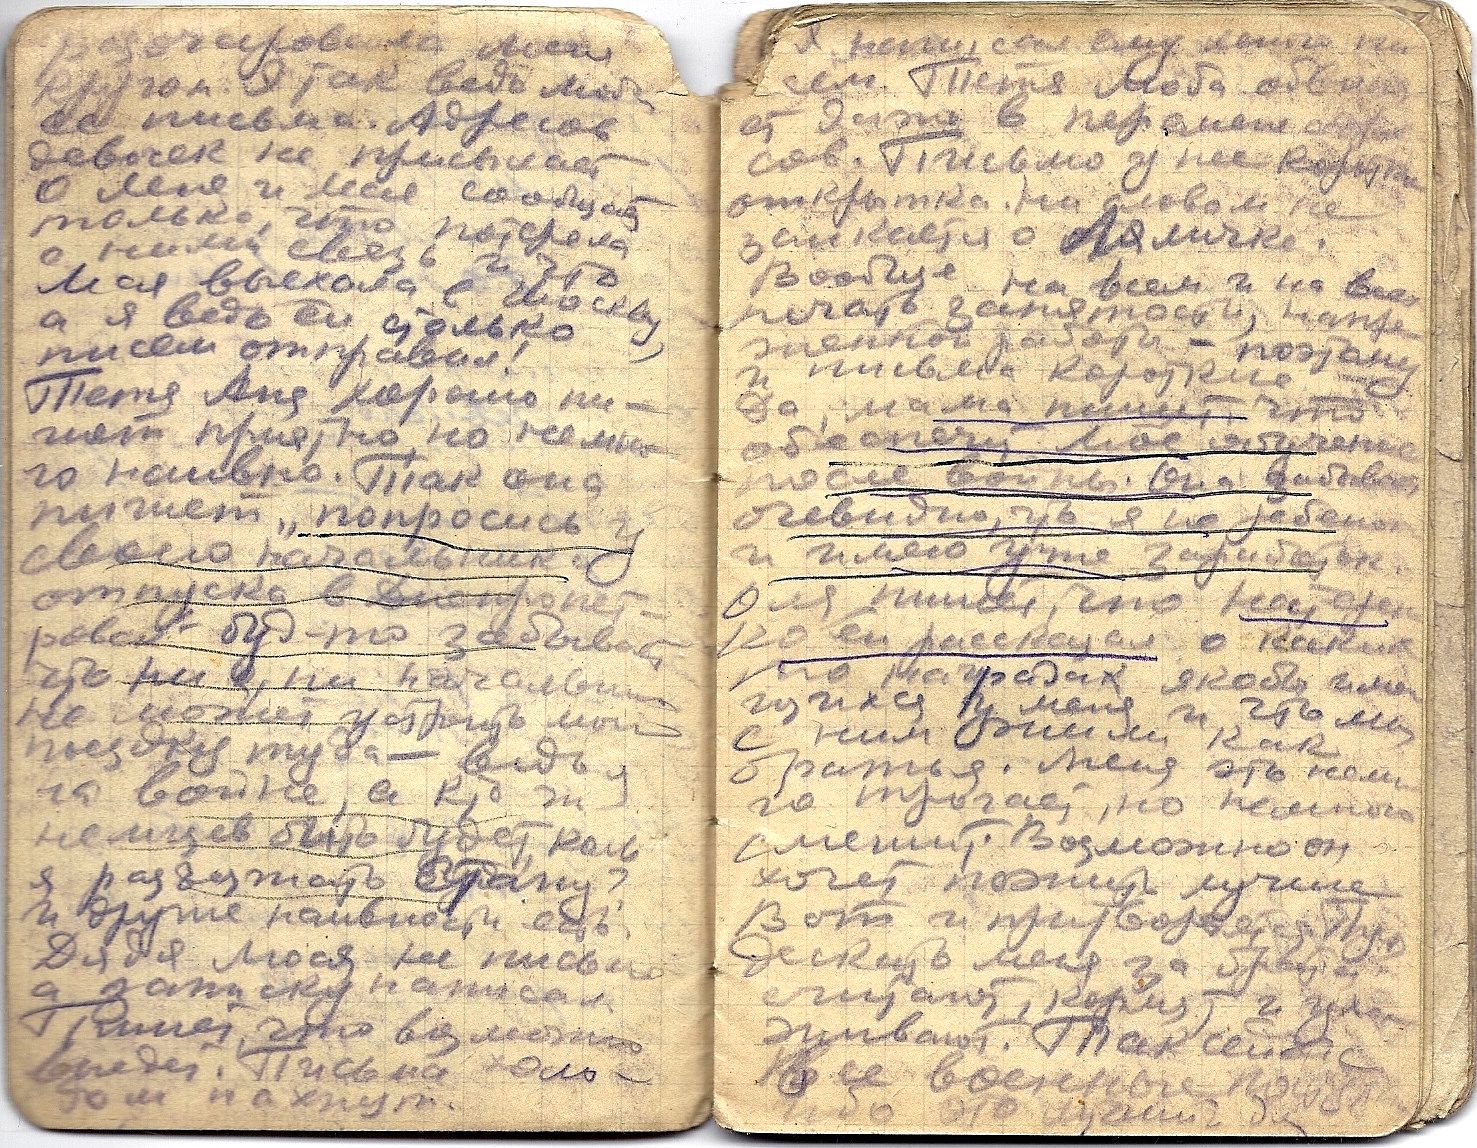 разочаровала моя
кругом. Я так ведь
ее письма. Адресов
девочек не присылает
О Лене и Мае сообщает
только, что потеряла
с ними связь и что
Мая выехала в Москву,
а я ведь ей столько
писем отправил!
Тетя Аня хорошо пи-
шет приятно, но немно
го наивно. Так она
пишет „попросись у
своего начальника
отпуска в Днепропет-
ровск" будто забывает
что ни я, ни начальник
не может устроить мою
поездку туда — ведь я
на войне, а кто ж
немцев бить будет, коль
я разъезжать стану?
и другие наивности есть.
Дядя Люся не письмо
а записку написал
Пишет, что возможно
приедет. Письма холо-
дом пахнут.
Я написал ему пи
сем. Тетя Люба обвиня
ет Зина в перемене адре
сов. Письмо у нее
открытка. Ни словом не
заикается о Ляличке.
Вообще на всем и на всех
печать занятости, напря
женной работы — поэтому
и письма короткие.
Да, мама пишет, что
обеспечит мое обучение
после войны. Она забывает
очевидно, что я не ребенок
и имею уже заработок.
Оля пишет, что
ко ей рассказал о каких
то наградах якобы имею
щихся у меня и что мы
с ним жили как
братья. Меня это немно
го трогает, но немного
смешит. Возможно он
хочет пожить лучше
Вот и притворяется.
дескать меня за брата
считают, кормят и
живают. Так сейчас
все военные
ибо это лучший